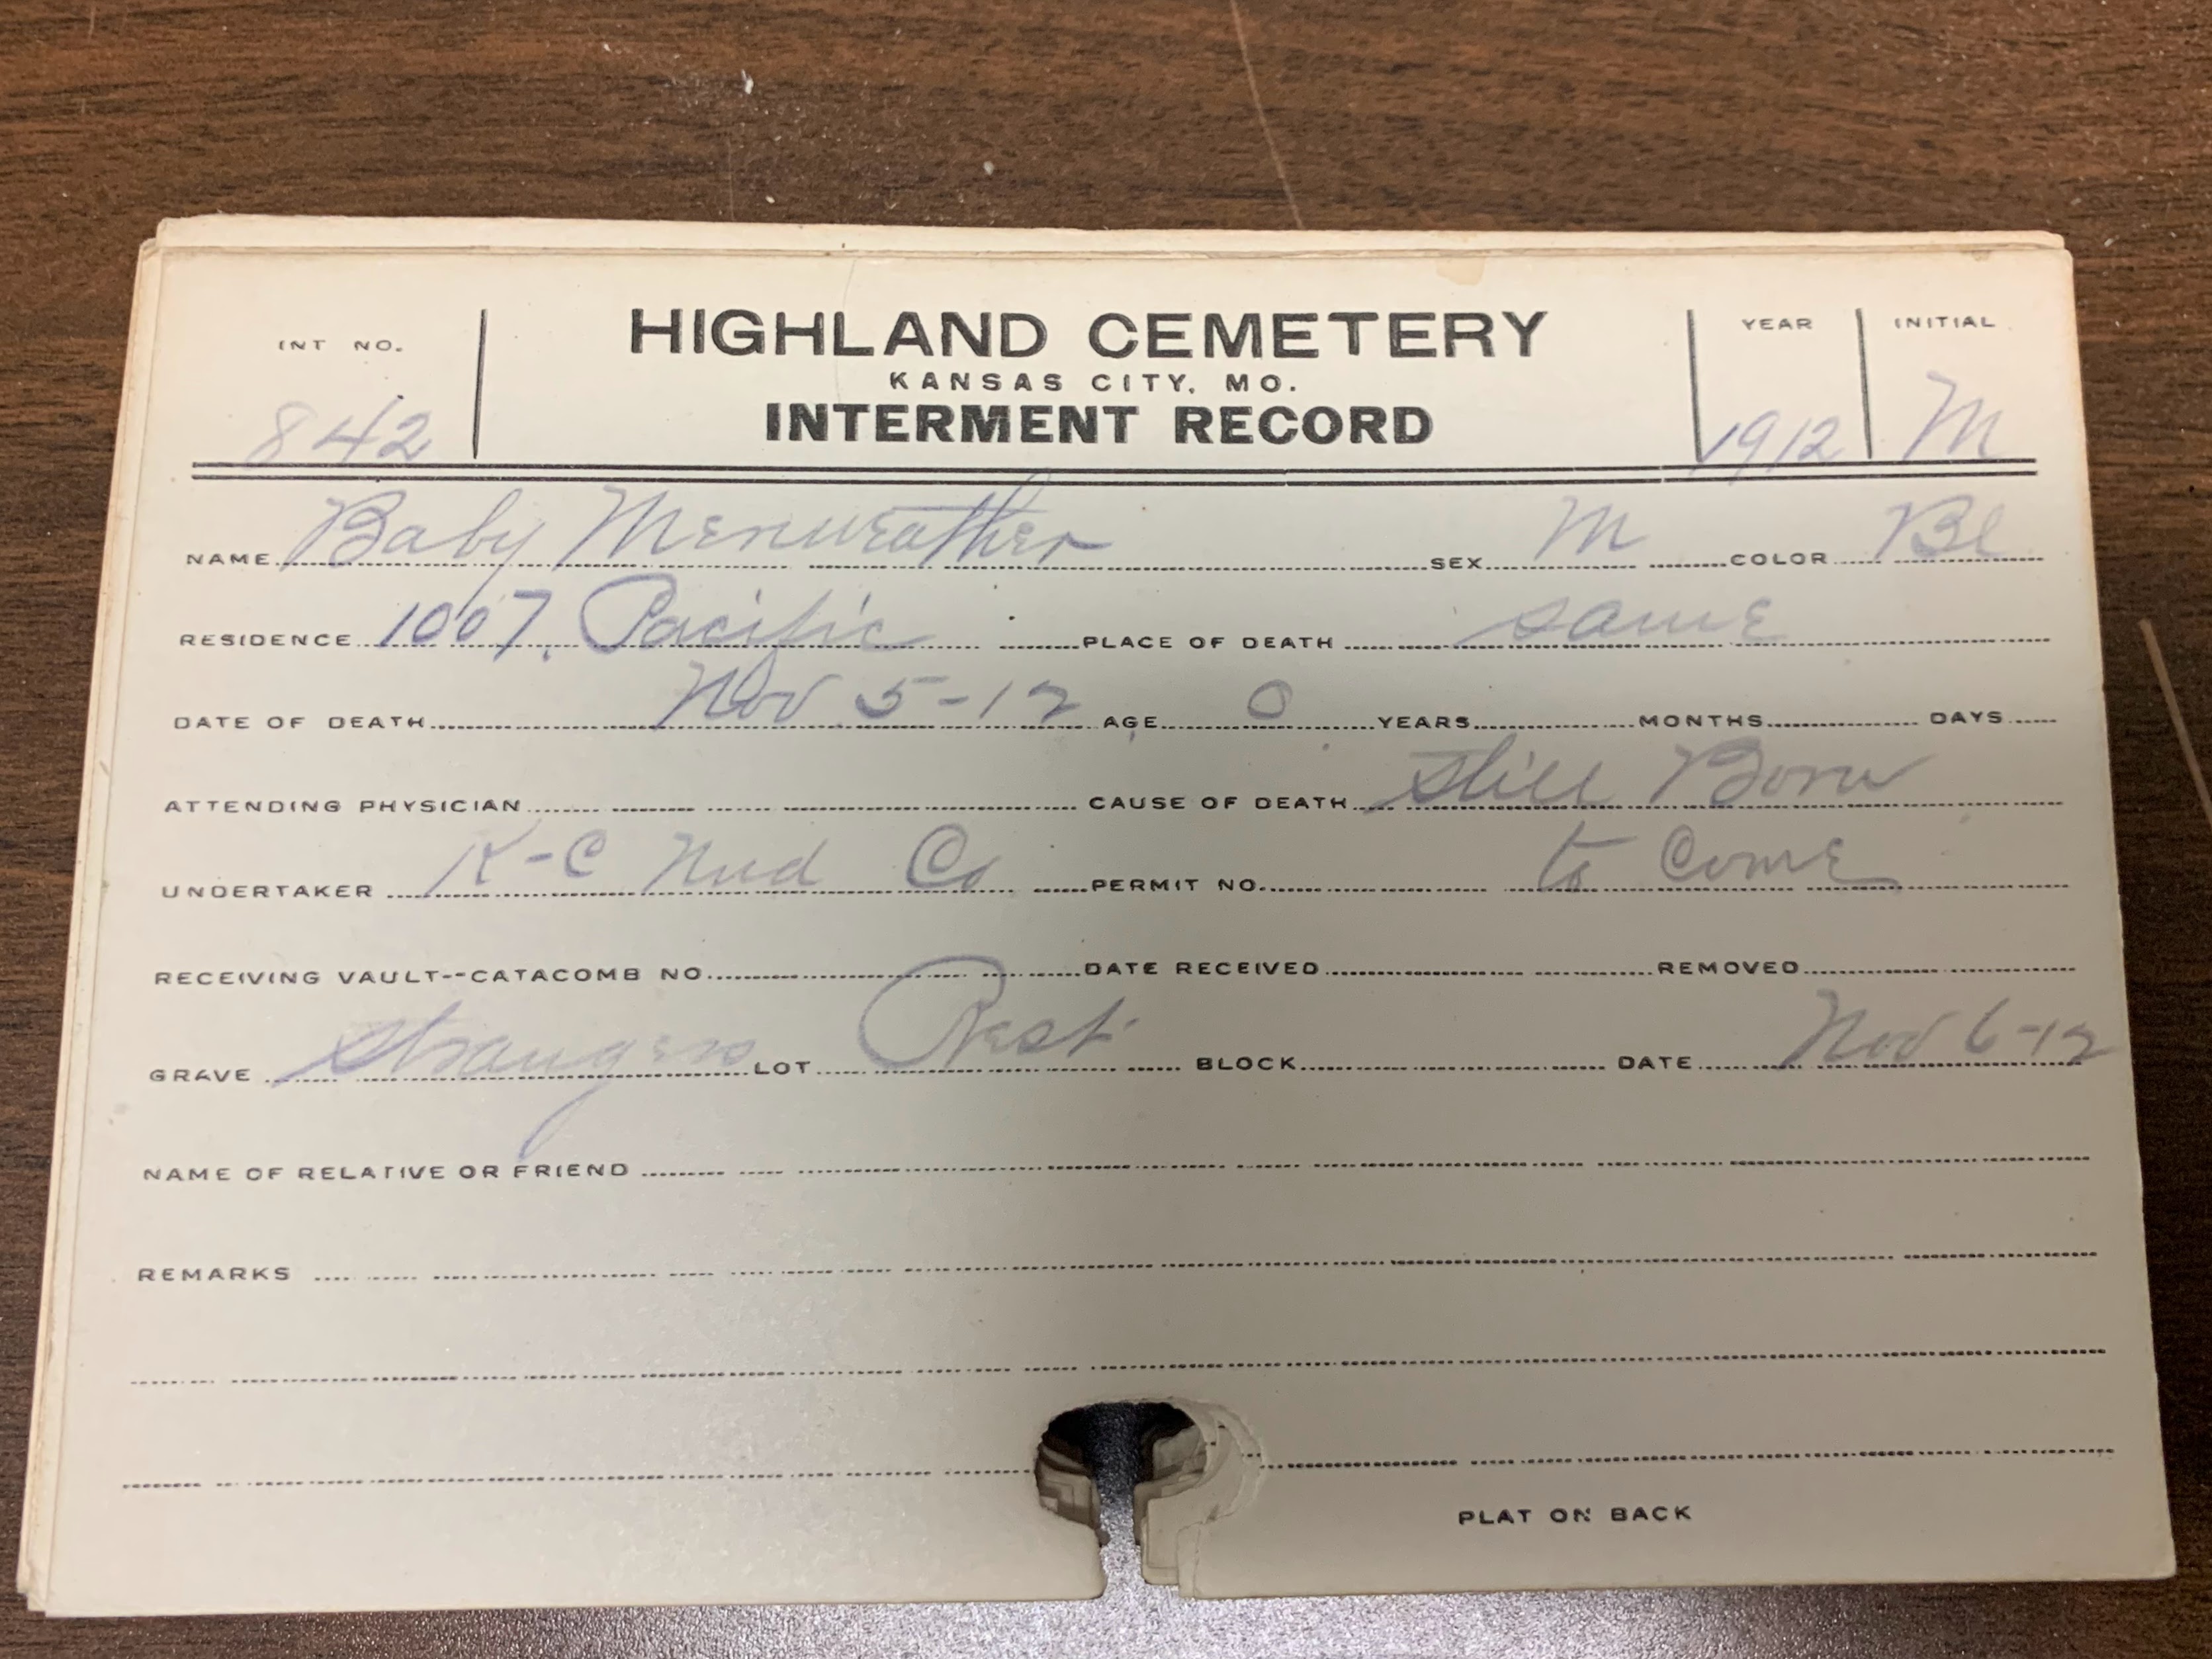 INT NO. HIGHLAND CEMETERY YEAR INITIAL
KANSAS CITY, MO.
842 INTERMENT RECORD 1912 M
NAME Baby Merriweather SEX M COLOR Bl
RESIDENCE 1007. Pacific PLACE OF DEATH same
DATE OF DEATH Nov 5-12 AGE 0 YEARS MONTHS DAYS
ATTENDING PHYSICIAN CAUSE OF DEATH Still Born
UNDERTAKER K-C Co PERMIT NO. to Come
RECEIVING VAULT--CATACOMB NO. DATE RECEIVED REMOVED
GRAVE Strangers LOT Rest BLOCK DATE Nov 6-12
NAME OF RELATIVE OR FRIEND
REMARKS
PLAT ON BACK